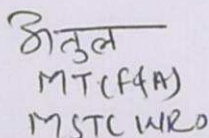 अतुल
MT (F&A)
MSTC WRO